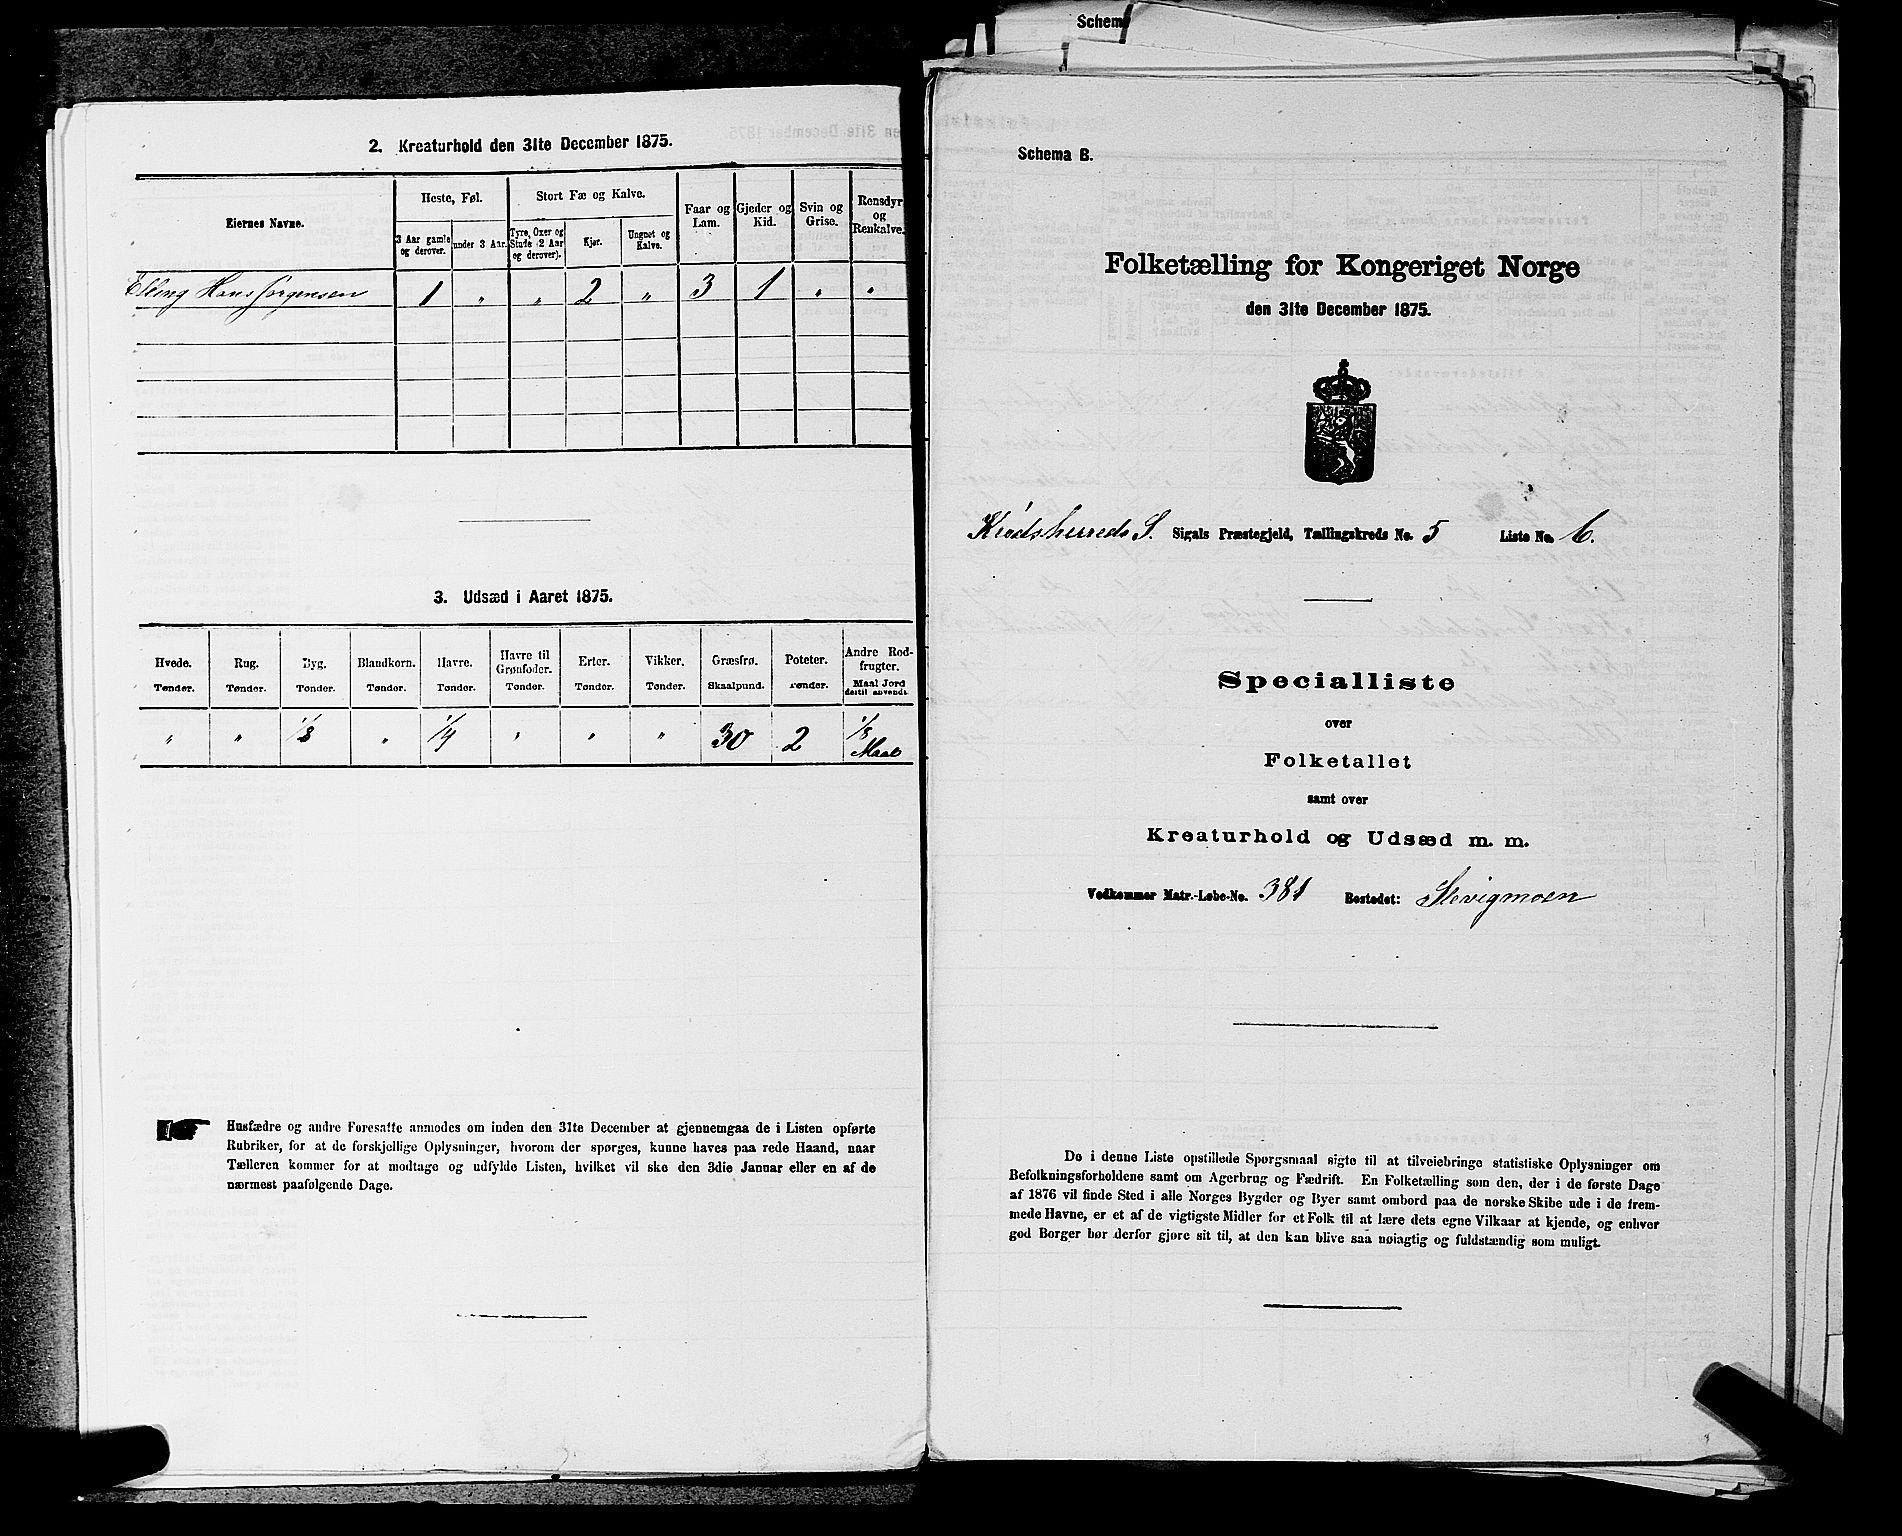 2. Kreaturhold den 31te December 1875.
Eiernes Navne.
Heste, Føl.
Stort Fæ og Kalve.
Faar og Lam.
Gjeder og Kid.
Svin og Grise.
Rensdyr og Renkalve.
3 Aar gamle og derover.
under 3 Aar.
Tyre, Oxer og Stude (2 Aar og derover).
Kjør.
Ungnet og Kalve.
Elling Hans Jørgensen 1 " " 2 " 3 1 " "
3. Udsæd i Aaret 1875.
Hvede. Tønder.
Rug. Tønder.
Byg. Tønder.
Blandkorn. Tønder.
Havre. Tønder.
Havre til Grønfoder. Tønder.
Erter. Tønder.
Vikker. Tønder.
Græsfrø. Skaalpund.
Poteter. Tønder.
Andre Rodfrugter. Maal Jord dertil anvendt.
" " 1/8 " 1/4 " " " 30 2 1/8 Maal
Husfædre og andre Foresatte anmodes om inden den 31te December at gjennemgaa de i Listen opførte
Rubriker, for at de forskjellige Oplysninger, hvorom der spørges, kunne haves paa rede Haand, naar
Tælleren kommer for at modtage og udfylde Listen, hvilket vil ske den 3die Januar eller en af de
nærmest paafølgende Dage.
Schem
Schema B.
Folketælling for Kongeriget Norge
den 31te December 1875.
Krødsherreds S. Sigdals Præstegjeld, Tællingskreds No. 5 Liste No. 6.
Specialliste
over
Folketallet
samt over
Kreaturhold og Udsæd m. m.
Vedkommer Matr.-Løbe-No. 381 Bostedet: Slevigmoen
De i denne Liste opstillede Spørgsmaal sigte til at tilveiebringe statistiske Oplysninger om
Befolkningsforholdene samt om Agerbrug og Fædrift. En Folketælling som den, der i de første Dage
af 1876 vil finde Sted i alle Norges Bygder og Byer samt ombord paa de norske Skibe ude i de frem-
mede Havne, er et af de vigtigste Midler for et Folk til at lære dets egne Vilkaar at kjende, og enhver
god Borger bør derfor gjøre sit til, at den kan blive saa nøiagtig og fuldstændig som muligt.